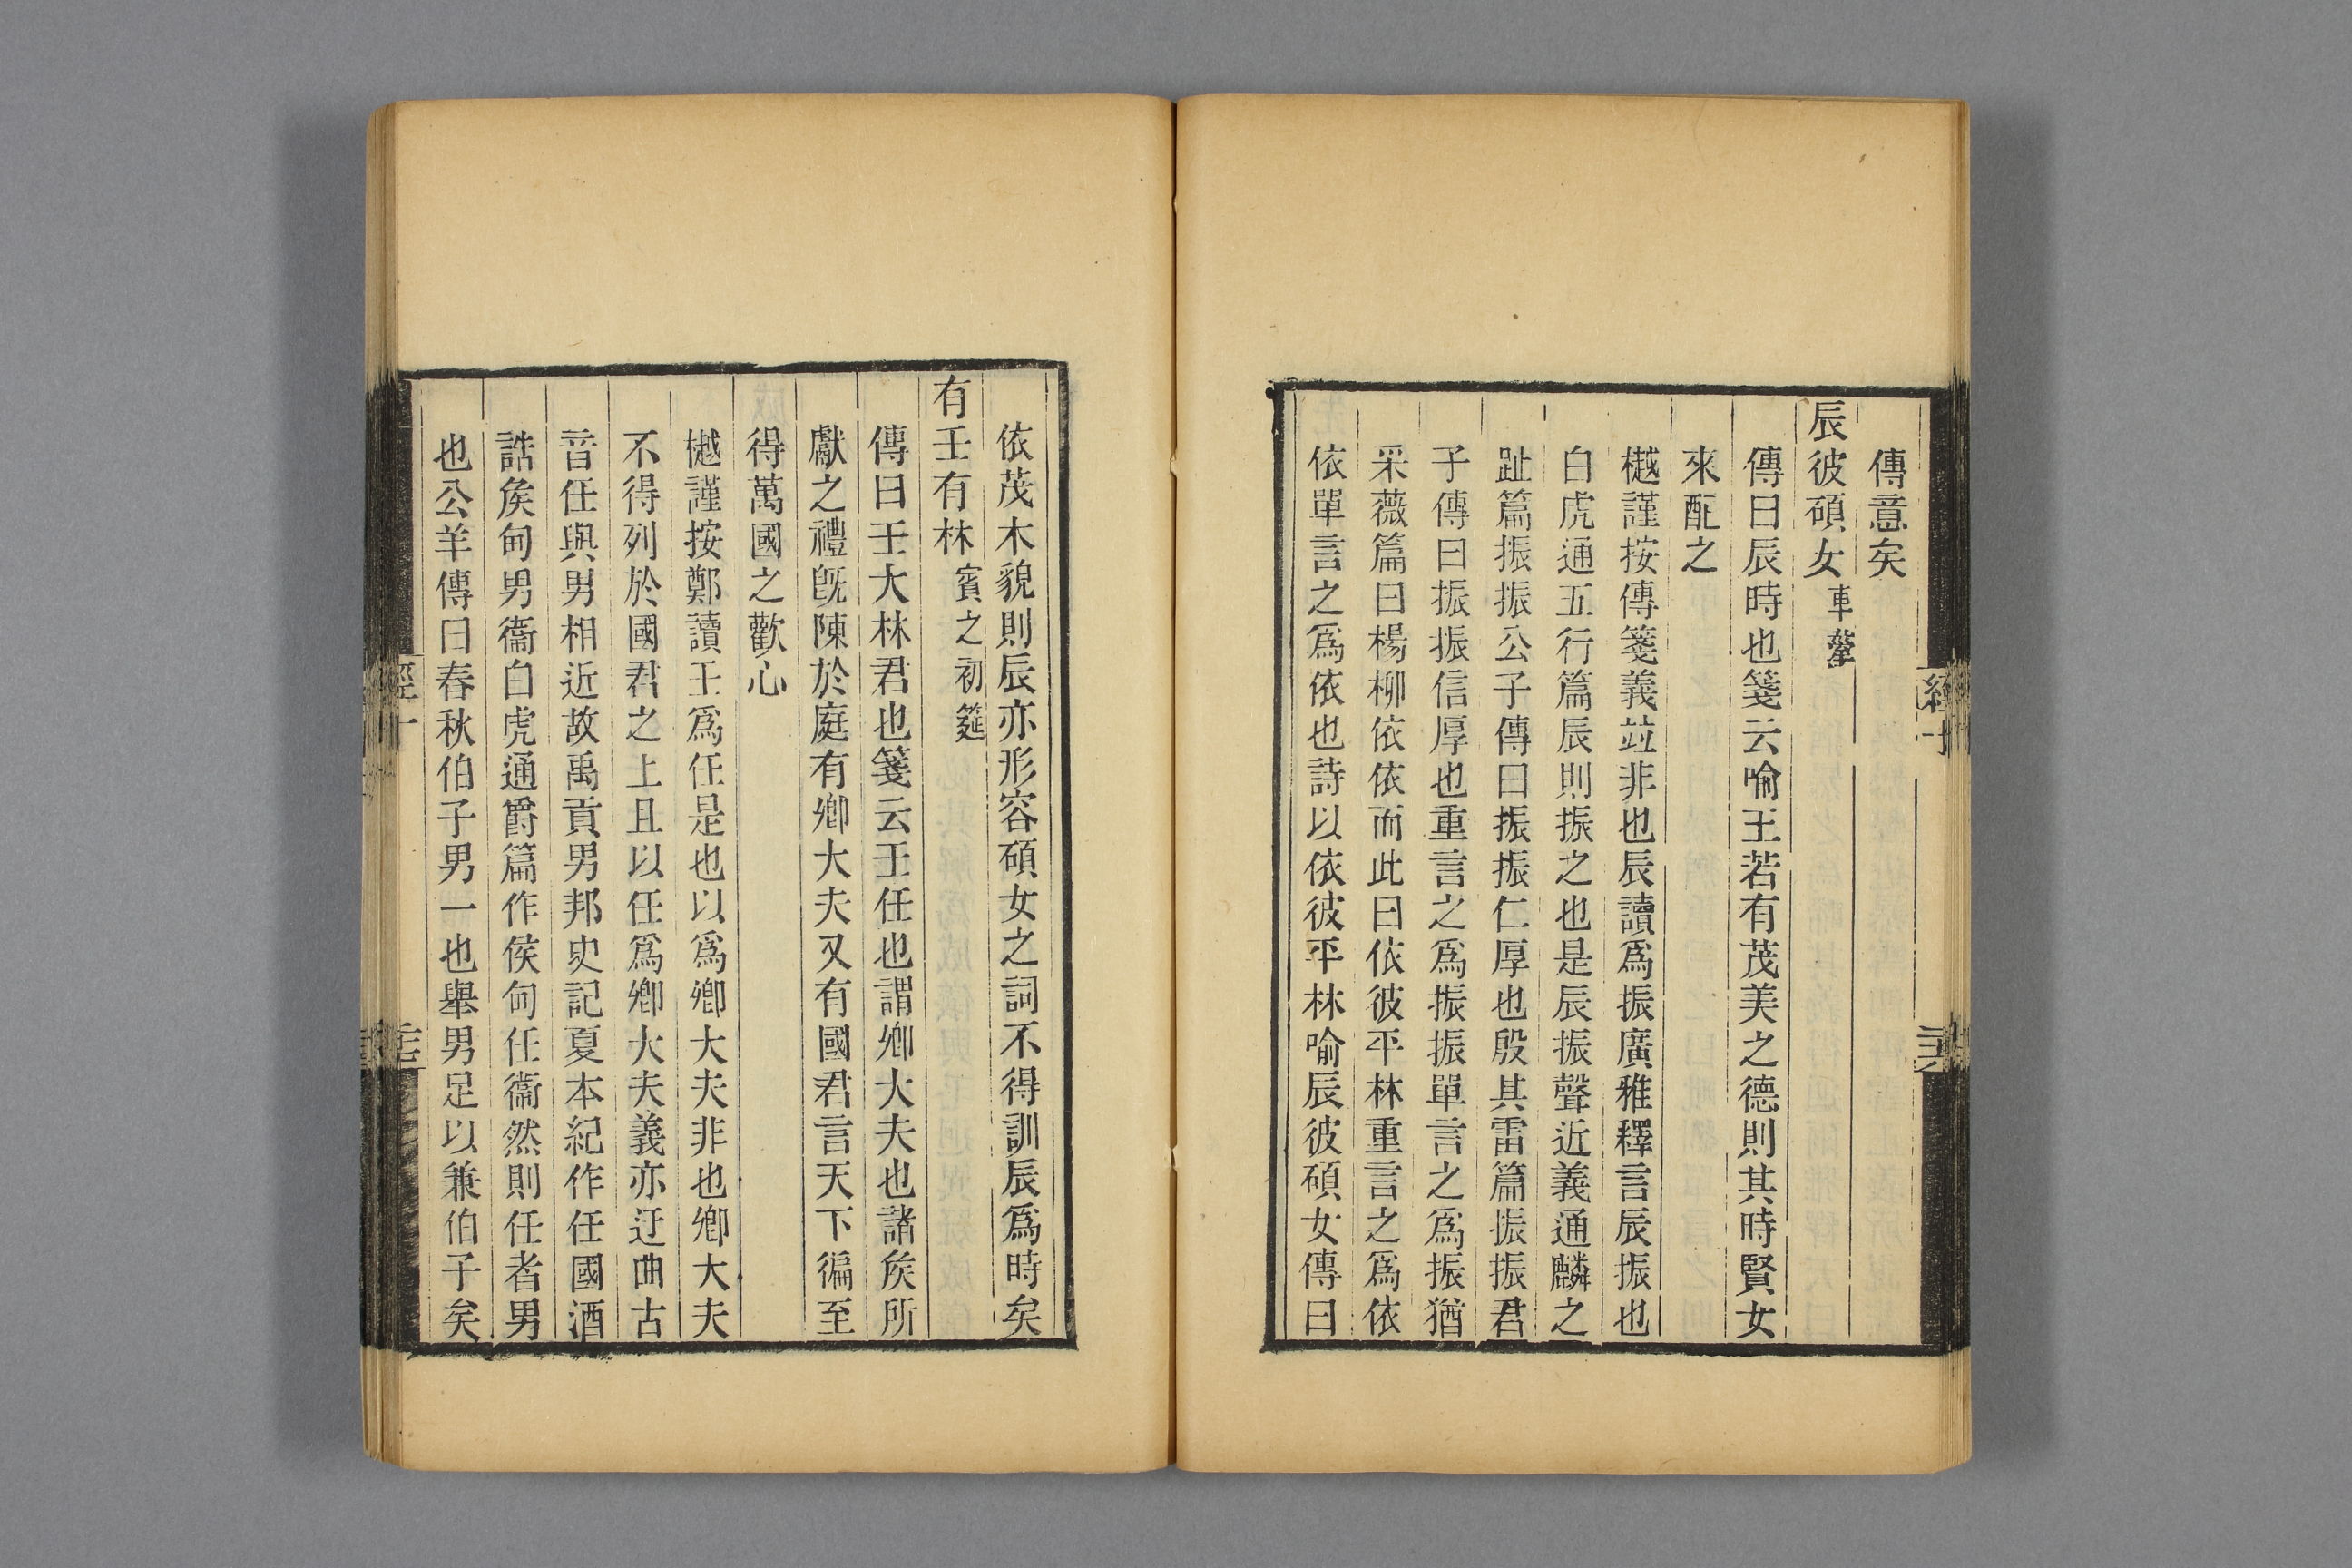 傳意矣
辰彼碩女車舝
傳曰辰時也箋云喻王若有茂美之德則其時賢女
來配之
樾謹按傳箋義竝非也辰讀爲振廣雅釋言辰振也
白虎通五行篇辰則振之也是辰振聲近義通麟之
趾篇振振公子傳曰振振仁厚也殷其雷篇振振君
子傳曰振振信厚也重言之爲振振單言之爲振猶
采薇篇曰楊柳依依而此曰依彼平林重言之爲依
依單言之爲依也詩以依彼平林喻辰彼碩女傳曰
依茂木貌則辰亦形容碩女之詞不得訓辰爲時矣
有壬有林賓之初筵
傳曰壬大林君也箋云壬任也謂卿大夫也諸矦所
獻之禮旣陳於庭有卿大夫又有國君言天下徧至
得萬國之歡心
樾謹按鄭讀壬爲任是也以爲卿大夫非也卿大夫
不得列於國君之上且以任爲卿大夫義亦迂曲古
音任與男相近故禹貢男邦史記夏本紀作任國酒
誥矦甸男衞白虎通爵篇作侯甸任衞然則任者男
也公羊傳曰春秋伯子男一也舉男足以兼伯子矣